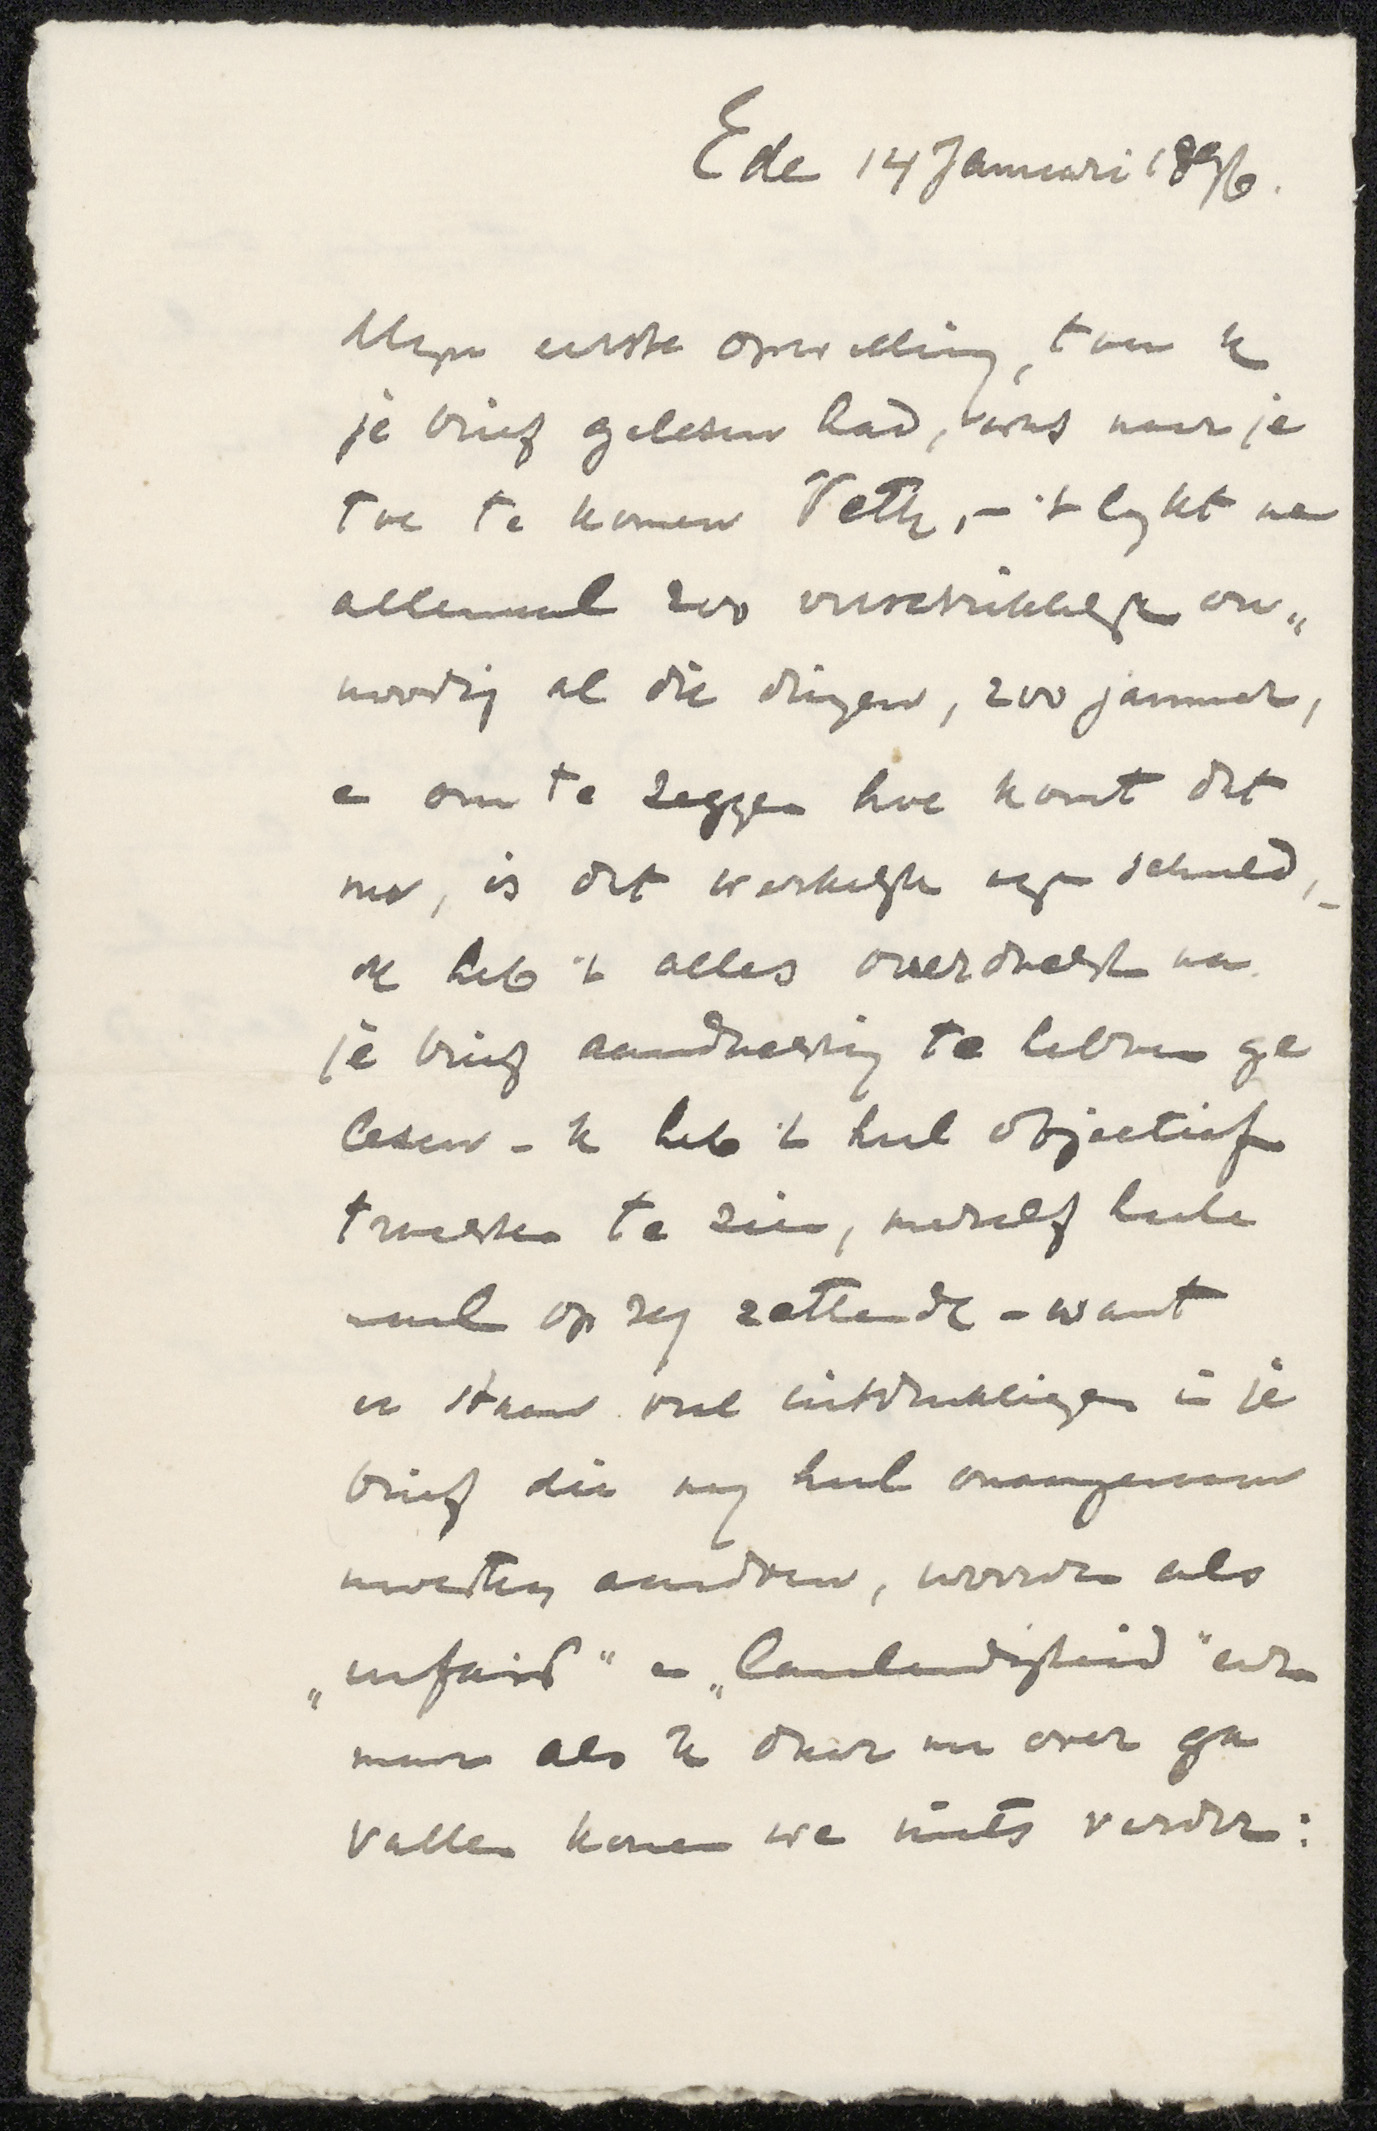 Ede 14 Januari 1896.
Mijn eerste opwelling, toen ik
je brief gelezen had, was naar je
toe te komen Veth, – 't lijkt me
allemaal zoo verschrikkelijk on„
noodig al die dingen, zoo jammer,
e om te zeggen hoe komt dat
nu, is dat werkelijk mijn schuld, –
ik heb 't alles overdacht na
je brief aandachtig te hebben ge
lezen – ik heb 't heel objectief
trachten te zien, mezelf hele
maal op zij zettende – want
er staan veel uitdrukkingen in je
brief die mij heel onaangenaam
moesten aandoen, woorden als
„unfair" e „laaghartigheid"
maar als ik daar nu over ga
vallen komen we niets verder: